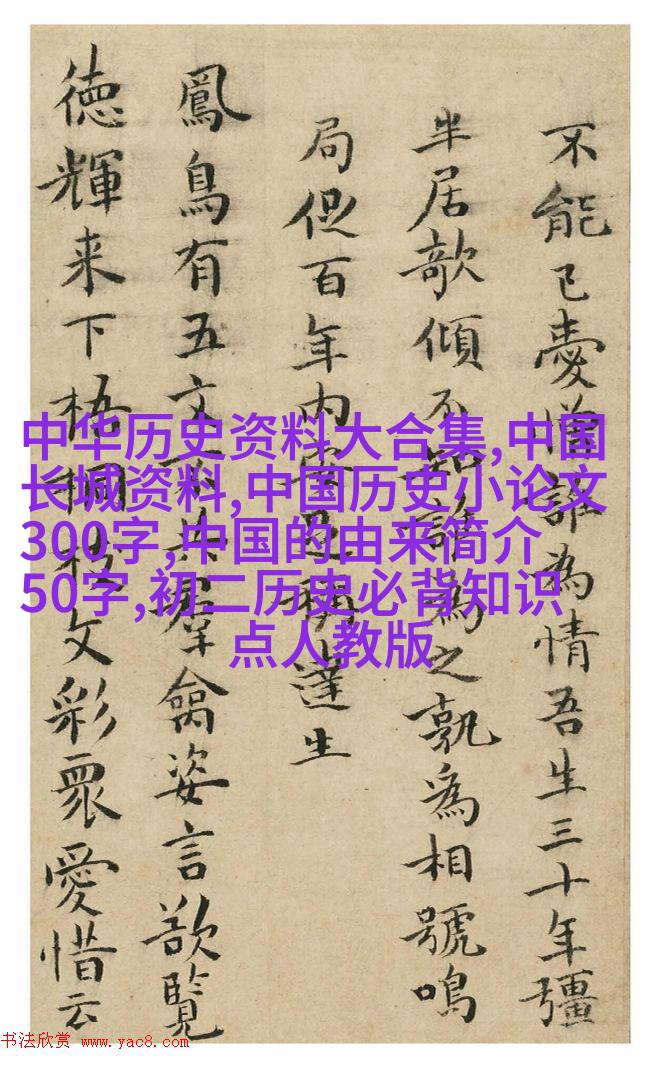 不能已愛憎誰為情吾生三十年彊
半居欹傾不知誰為之孰為相號鳴
局促百年内達生
鳳鳥有五文不與羣禽姿言欲覽
徳輝来下梧桐枝文彩衆愛惜云
中华历史资料大合集,中国
长城资料,中国历史小论文
300字,中国的由来简介
50字,初二历史必背知识
点人教版
书法欣赏 www.yac8.com